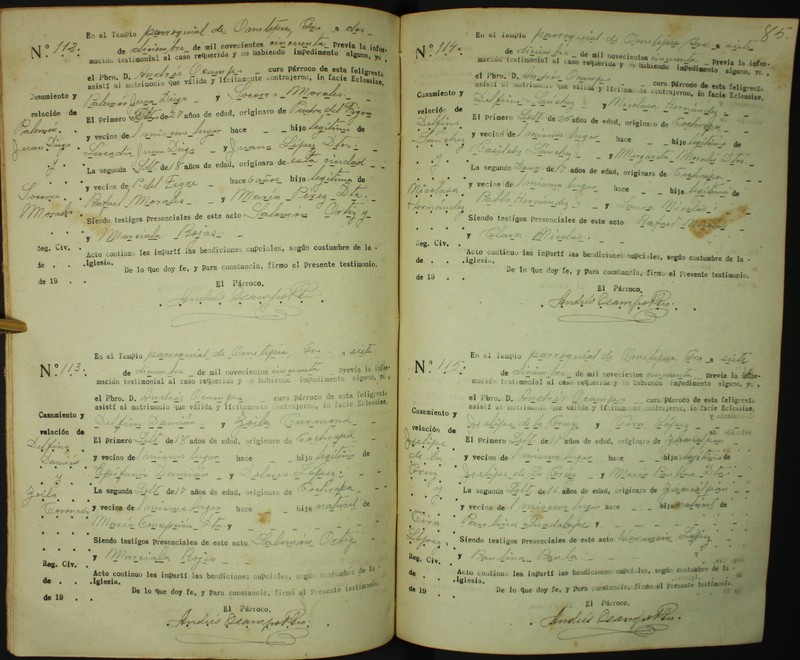 En el Templo parroquial de Ometepec, Gro. a dos
Nº 112. de diciembre de mil novecientos cincuenta previa la infor-
mación testimonial al caso requerida y no habiendo impedimento alguno, yo,
el Pbro. D. Andrés Ocampo cura párroco de esta feligresía
asistí al matrimonio que válida y lícitamente contrajeron, in facie Ecclesiae,
Casamiento y Palemón Juan Diego y Socorro Morales.
relación de El Primero Solt. de 27 años de edad, originaro de Piedra del
Palemón y vecino del mismo lugar hace hijo legítimo de
Juan Diego Juan Diego y Juana López Dtos.
y La segunda Solt. de 18 años de edad, originara de esta ciudad
y vecina de P. del hace 6 años hija legítima de
Socorro Rafael Morales y María Pérez Dta.
Morales Siendo testigos presenciales de este acto Ortiz y
y Marciala Rojas
Reg. Civ. Acto continuo les impartí las bendiciones nupciales, según costumbre de la
de . . .Iglesia.
De lo que doy fe, y para constancia, firmo el Presente testimonio.
de 19 . .
El Párroco,
Andrés Ocampo Pbro.
En el Templo parroquial de Ometepec, Gro. a siete
Nº 113. de diciembre de mil novecientos cincuenta Previa la infor-
mación testimonial al caso requerida y no habiendo impedimento alguno, yo,
el Pbro. D. Andrés Ocampo cura párroco de esta feligresía
asistí al matrimonio que válida y lícitamente contrajeron, in facie Ecclesiae,
Casamiento y Delfino Damián y Zoila
relación de El Primero Solt. de 18 años de edad, originaro de Cochoapa
Delfino y vecino del mismo lugar hace hijo legítimo de
Damián Damián y Dolores López.
y La segunda Solt. de 17 años de edad, originara de Cochoapa
Zoila y vecina del mismo lugar hace hija natural de
María Concepción Dta. y
Siendo testigos presenciales de este acto Ortiz
y Marciala Rojas
Reg. Civ. Acto continuo les impartí las bendiciones nupciales, según costumbre de la
de . . .Iglesia.
De lo que doy fe, y para constancia, firmo el Presente testimonio.
de 19 . .
El Párroco,
Andrés Ocampo Pbro.
85.
En el Templo parroquial de Ometepec, Gro. a siete
Nº 114. de diciembre de mil novecientos cincuenta previa la infor-
mación testimonial al caso requerida y no habiendo impedimento alguno, yo,
el Pbro. D. Andrés Ocampo cura párroco de esta feligresía
asistí al matrimonio que válida y lícitamente contrajeron, in facie Ecclesiae,
Casamiento y Delfino Sánchez y Nicolasa Hernández
relación de El Primero Solt. de años de edad, originaro de Cochoapa
Delfino y vecino del mismo lugar hace hijo legítimo de
Sánchez Sánchez y Margarita Morales Dtos.
y La segunda de años de edad, originara de Cochoapa
Nicolasa y vecina del mismo lugar hace hija legítima de
Hernández Pablo Hernández y Nicolás
Siendo testigos presenciales de este acto Rafael
y Clara Nicolás.
Reg. Civ. Acto continuo les impartí las bendiciones nupciales, según costumbre de la
de . . .Iglesia.
De lo que doy fe, y para constancia, firmo el Presente testimonio.
de 19 . .
El Párroco,
Andrés Ocampo Pbro.
En el Templo parroquial de Ometepec, Gro. a siete
Nº 115. de diciembre de mil novecientos cincuenta previa la infor-
mación testimonial al caso requerida y no habiendo impedimento alguno, yo,
el Pbro. D. Andrés Ocampo cura párroco de esta feligresía
asistí al matrimonio que válida y lícitamente contrajeron, in facie Ecclesiae,
Casamiento y Felipe de la Cruz y López
relación de El Primero Solt. de años de edad, originaro de
Felipe y vecino del mismo lugar hace hijo legítimo de
de la Felipe de la Cruz y María Dta.
Cruz
y La segunda Solt. de 16 años de edad, originara de
y vecina del mismo lugar hace hija natural de
Guadalupe y
López Siendo testigos presenciales de este acto López
y Paulina
Reg. Civ. Acto continuo les impartí las bendiciones nupciales, según costumbre de la
de . . .Iglesia.
De lo que doy fe, y para constancia, firmo el Presente testimonio.
de 19 . .
El Párroco,
Andrés Ocampo Pbro.